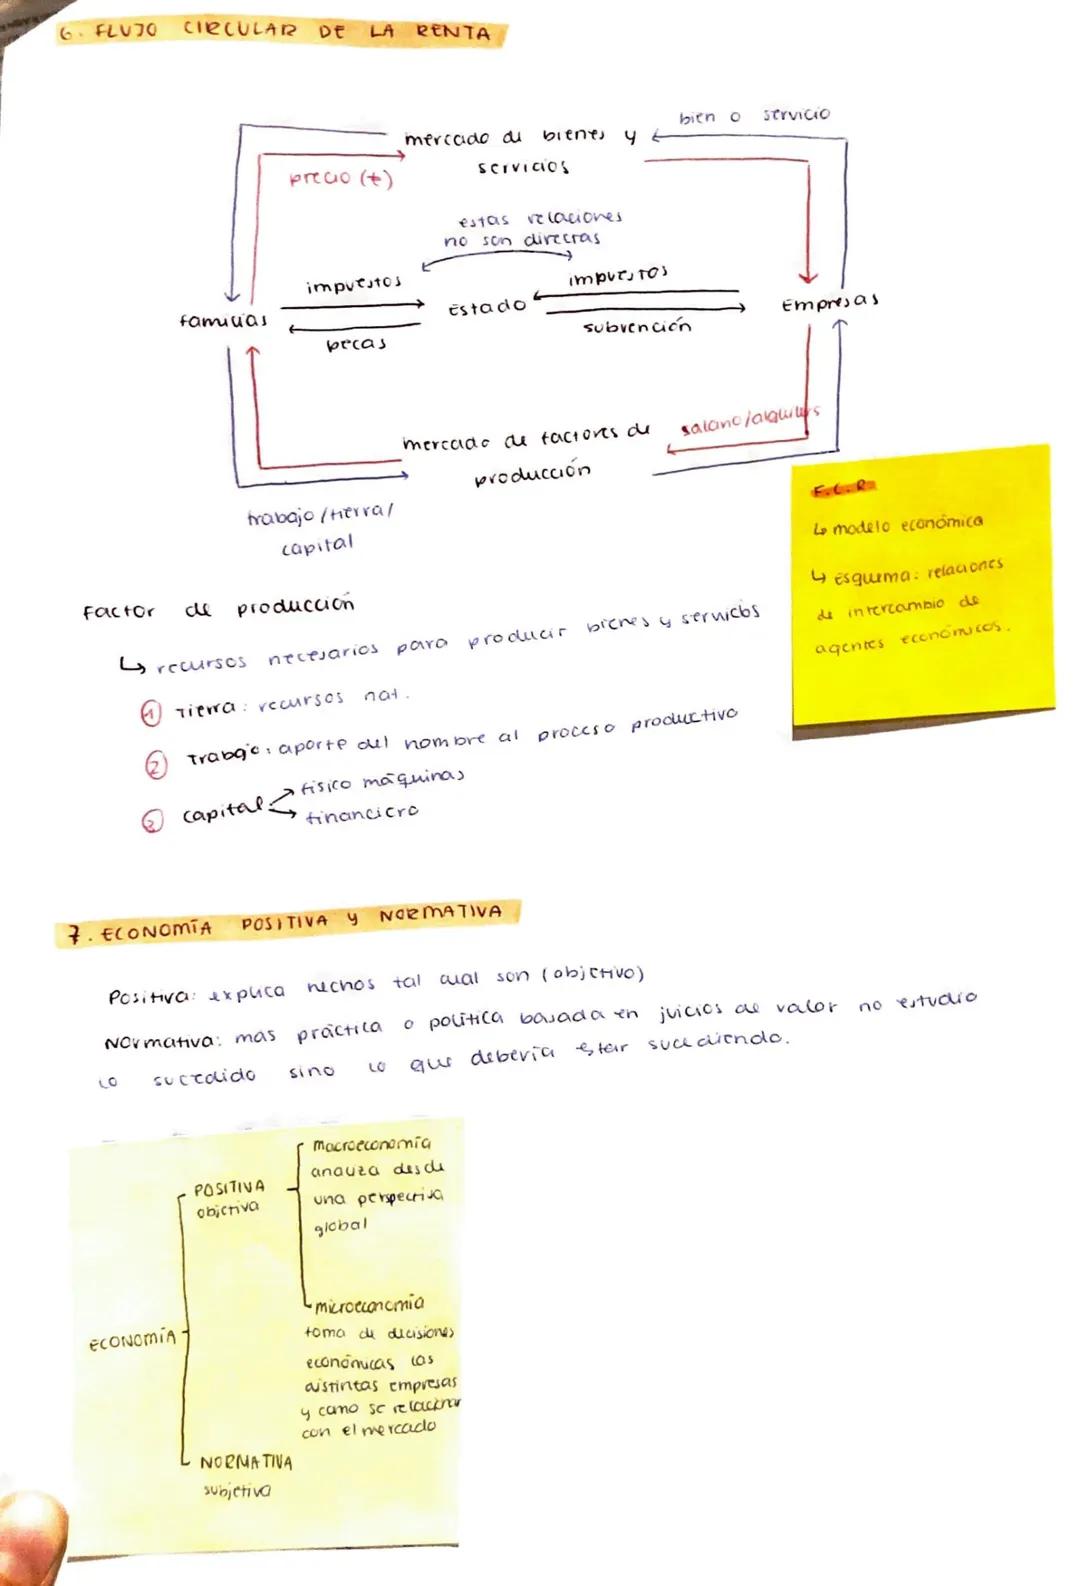 6. FLUJO CIRCULAR DE LA RENTA
bien o servicio
mercado de bienes y
servicios
precio (€)
estas relaciones
no son directas
impuestos
impuestos
familias
Estado
Empresas
becas
subvención
mercado de factores de
producción
salario/alquileres
trabajo/tierra/
capital
F.C.R.
↳ modelo económica
↳ Esquema: relaciones
de intercambio de
agentes económicos.
Factor de producción
↳ recursos necesarios para producir bienes y servicios
1 Tierra: recursos nat.
2 Trabajo: aporte del hombre al proceso productivo
3 capital
físico máquinas
financiero
7. ECONOMÍA POSITIVA y NORMATIVA
Positiva: explica hechos tal cual son (objetivo)
Normativa: mas práctica o política basada en juicios de valor no estudia
lo sucedido sino lo que debería estar sucediendo.
macroeconomía
analiza desde
una perspectiva
global
POSITIVA
objetiva
microeconomía
toma de decisiones
económicas las
distintas empresas
y como se relacionan
con el mercado
ECONOMÍA
NORMATIVA
subjetiva